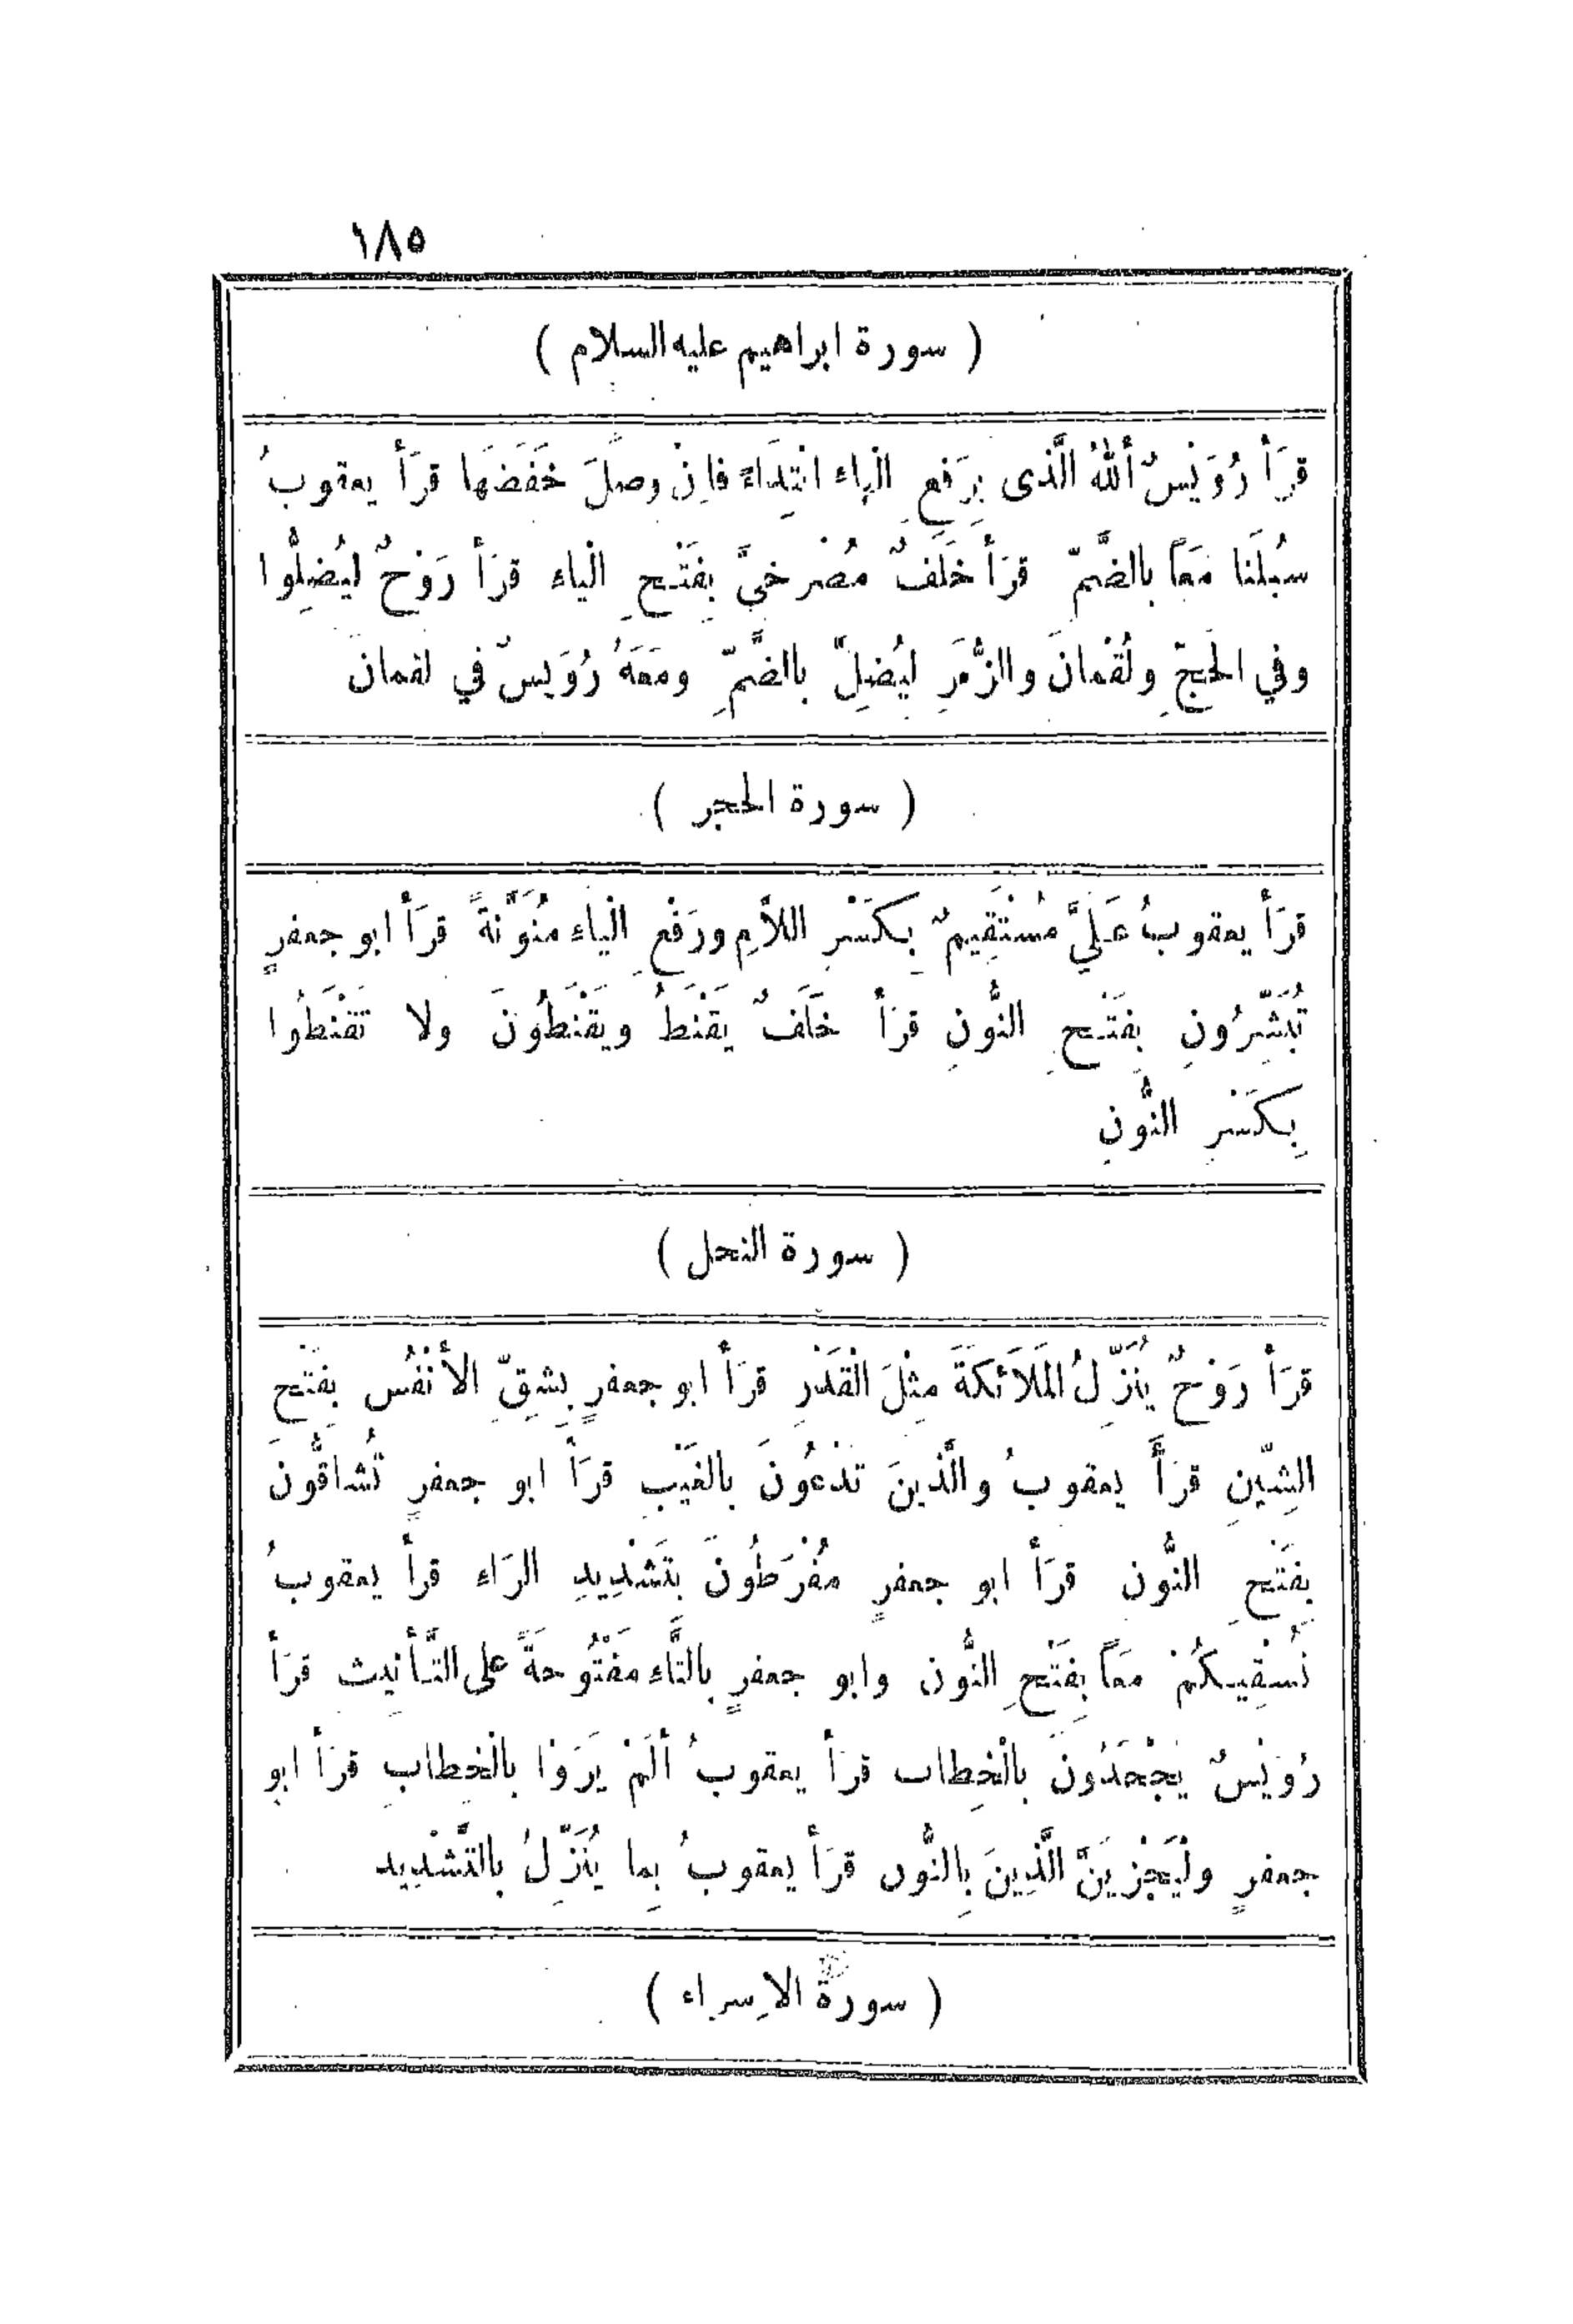 ١٨٥
( سورة ابراهيم عليه السلام )
قرَأ رُوَيْسٌ أللهُ الَّذى بِرَفعِ الْهاء ابْتِدَاءً فاِنْ وصَلَ خَفَضَها قرَأ يعقوبُ
سُبُلَنا مَعاً بالضَّمّ قرَأ خَلَفٌ مُصْرخىَّ بِفَتْحِ الْياء قرَأ رَوْحٌ ليُضِلُّوا
وفي الحَجّ ولُقْمانَ والزُّمَرِ ليُضِلَّ بالضَّمِّ ومَعَهُ رُوَيسٌ في لقمانَ
( سورة الحجر )
قرَأ يعقوبُ عَلَيَّ مُسْتَقِيمٌ بِكَسْرِ اللاَّمِ ورَفْعِ الْياءِ مُنَوَّنةً قرَأ ابو جعفرٍ
تُبَشِّرُونِ بِفَتْحِ النُّونِ قرَأ خَلَفٌ يَقْنَطُ ويَقْنَطُونَ ولا تَقْنَطُوا
بِكَسْرِ النُّونِ
( سورة النحل )
قرَأ رَوْحٌ يُنَزِّلُ المَلاَئكَةَ مِثْلَ الْقَدْرِ قرَأ ابو جعفرٍ بِشِقِّ الأنْفُسِ بِفَتْحِ
الشِّينِ قرَأَ يعقوبُ والَّذينَ تدْعُونَ بالغَيْبِ قرَأ ابو جعفرٍ تُشاقُّونَ
بِفَتْحِ النُّون قرَأ ابو جعفرٍ مُفْرَطُونَ بتَشْدِيدِ الرَاء قرأ يعقوبُ
نُسْقِيكُمْ مَعاً بِفَتْحِ النُّون وابو جعفرٍ بالتَّاء مَفْتُوحَةً على التَّأنِيث قرَأ
رُوَيْسٌ يَجْحَدُونَ بالْخِطاب قرَأ يعقوبُ ألَمْ يَرَوْا بالْخِطابِ قرَأ ابو
جعفرٍ ولْيَجْزِيَنَّ الَّذِينَ بِالنُّون قرَأ يعقوبُ بِما يُنَزِّلُ بالتَّشْدِيد
( سورة الاِسراء )